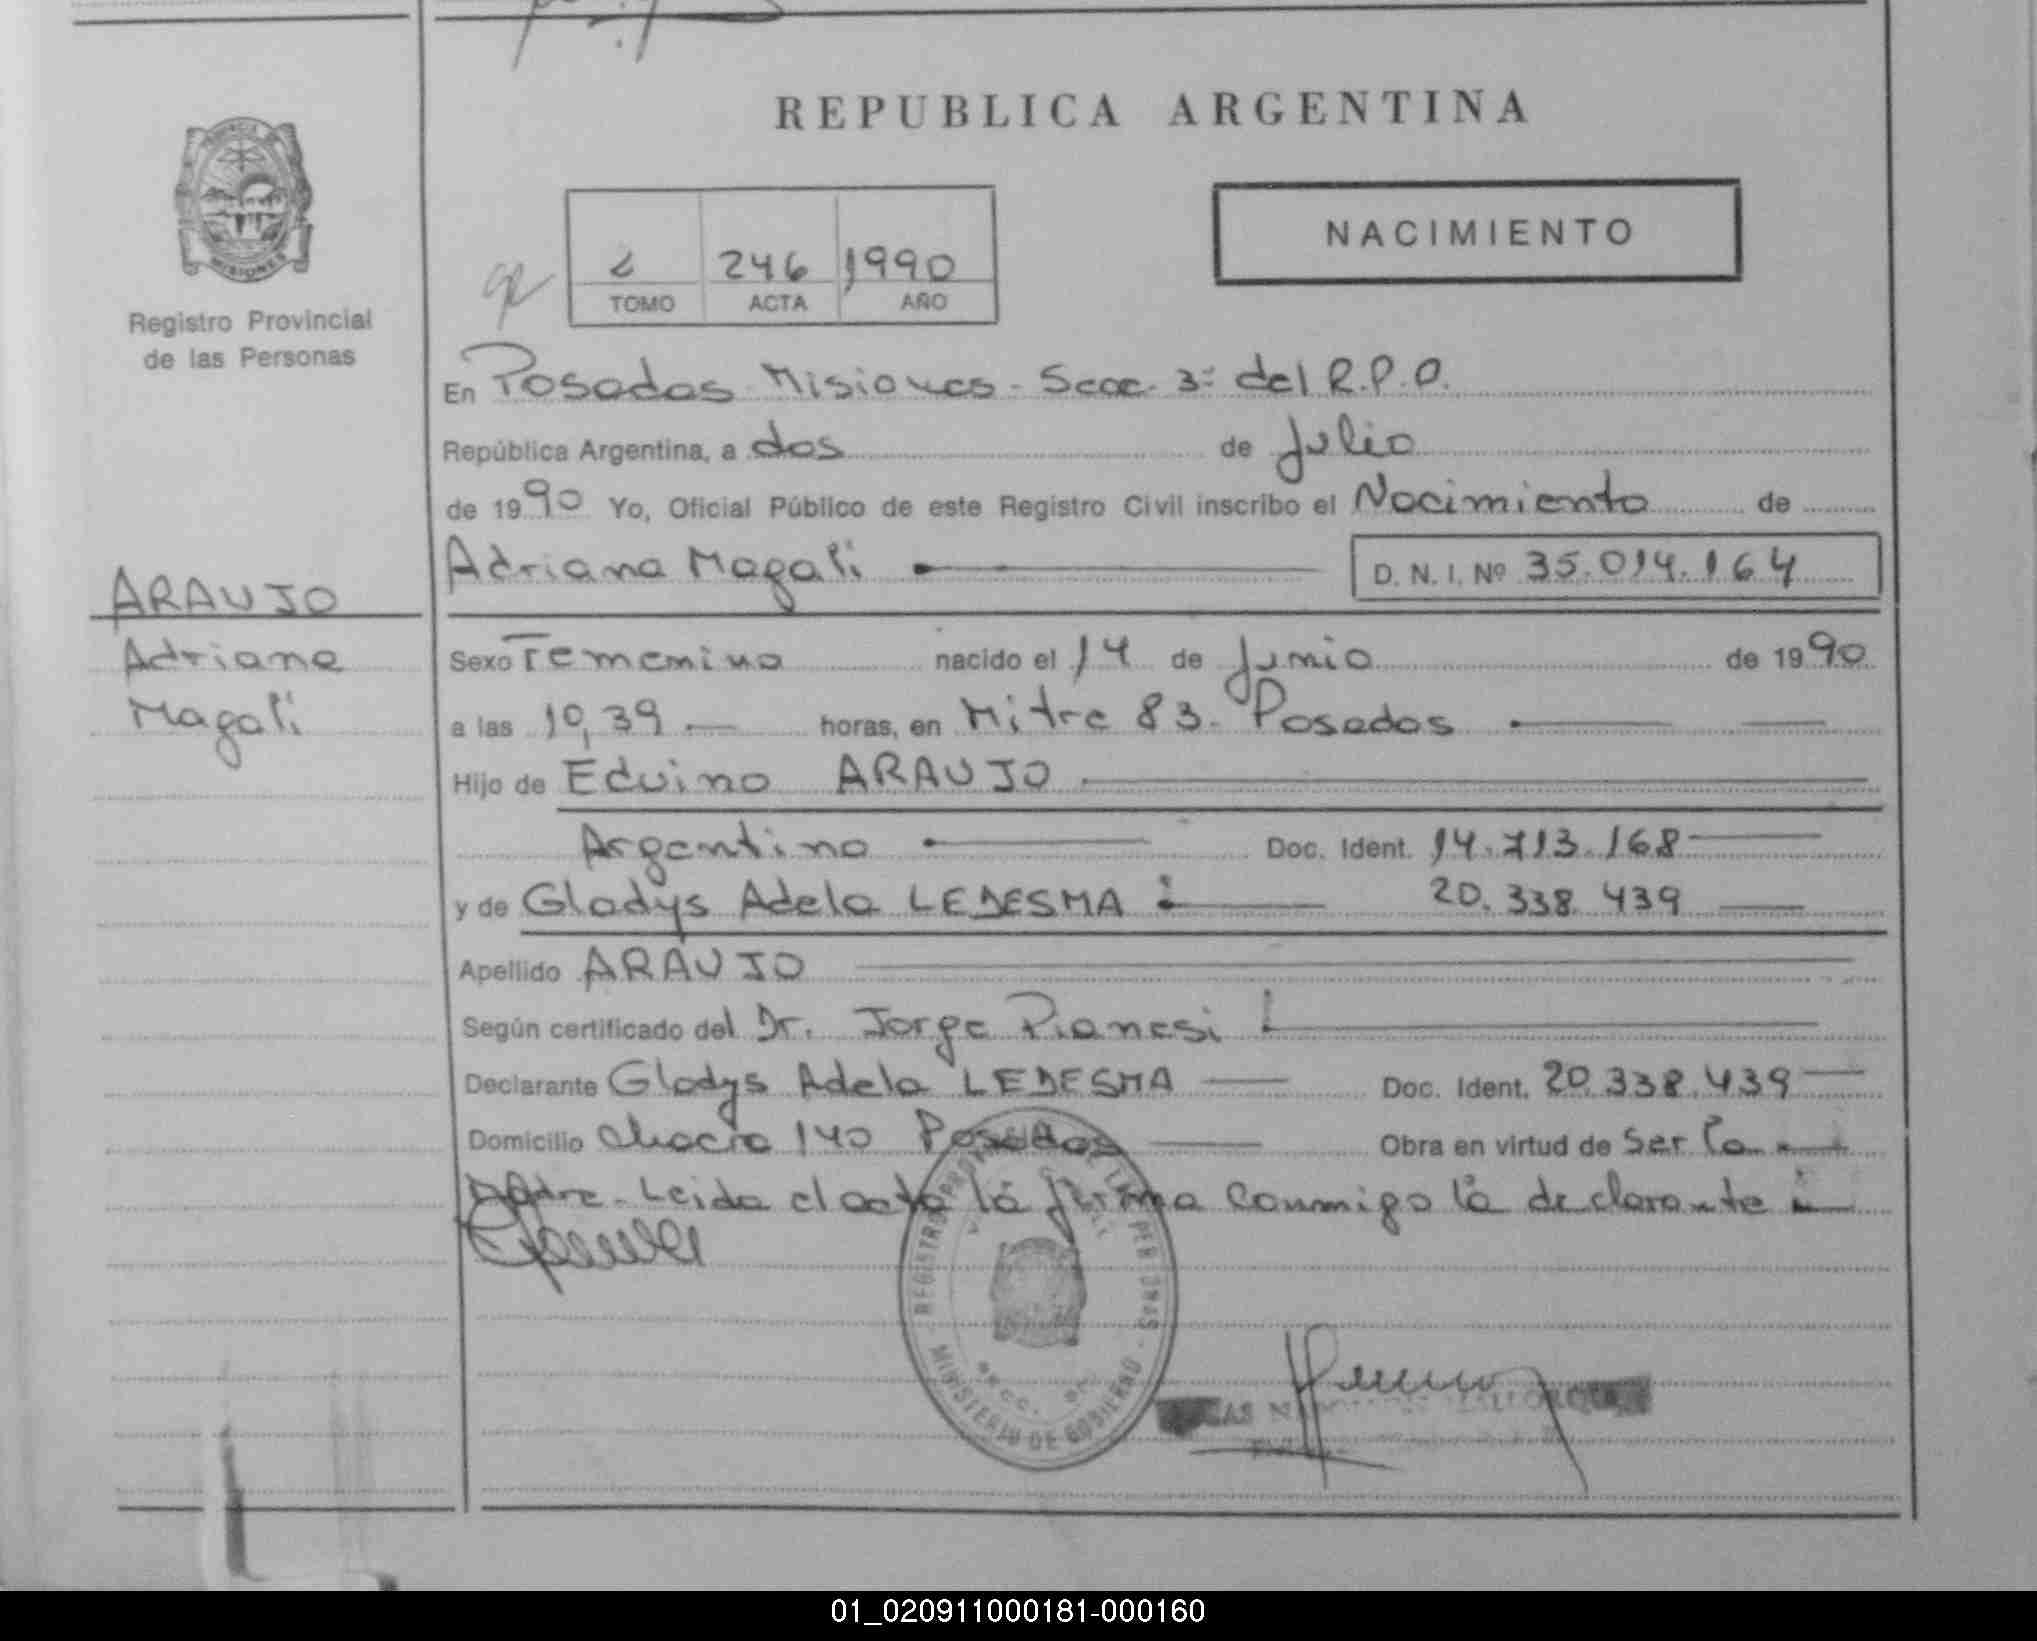 REPUBLICA ARGENTINA
NACIMIENTO
246 1990
TOMO ACTA AÑO
MISIONES
Registro Provincial
de las Personas
En Posadas Misiones - Secc. 3ª del R.P.P.
República Argentina, a dos de Julio
de 1990 Yo, Oficial Público de este Registro Civil inscribo el Nacimiento de
Adriana Magali D.N.I. Nº 35.014.164
ARAUJO
Adriana
Magali
Sexo Femenino nacido el 14 de Junio de 1990
a las 10,39 horas, en Mitre 83. Posadas
Hijo de Eduino ARAUJO
Argentino Doc. Ident. 14.713.168
y de Gladys Adela LEDESMA 20.338.439
Apellido ARAUJO
Según certificado del Dr. Jorge Pianesi
Declarante Gladys Adela LEDESMA Doc. Ident. 20.338.439
Domicilio Chacra 140 Posadas Obra en virtud de Ser la
Madre - Leida el acta la firma conmigo la declarante
REGISTRO PROVINCIAL DE LAS PERSONAS
MINISTERIO DE GOBIERNO
01_020911000181-000160